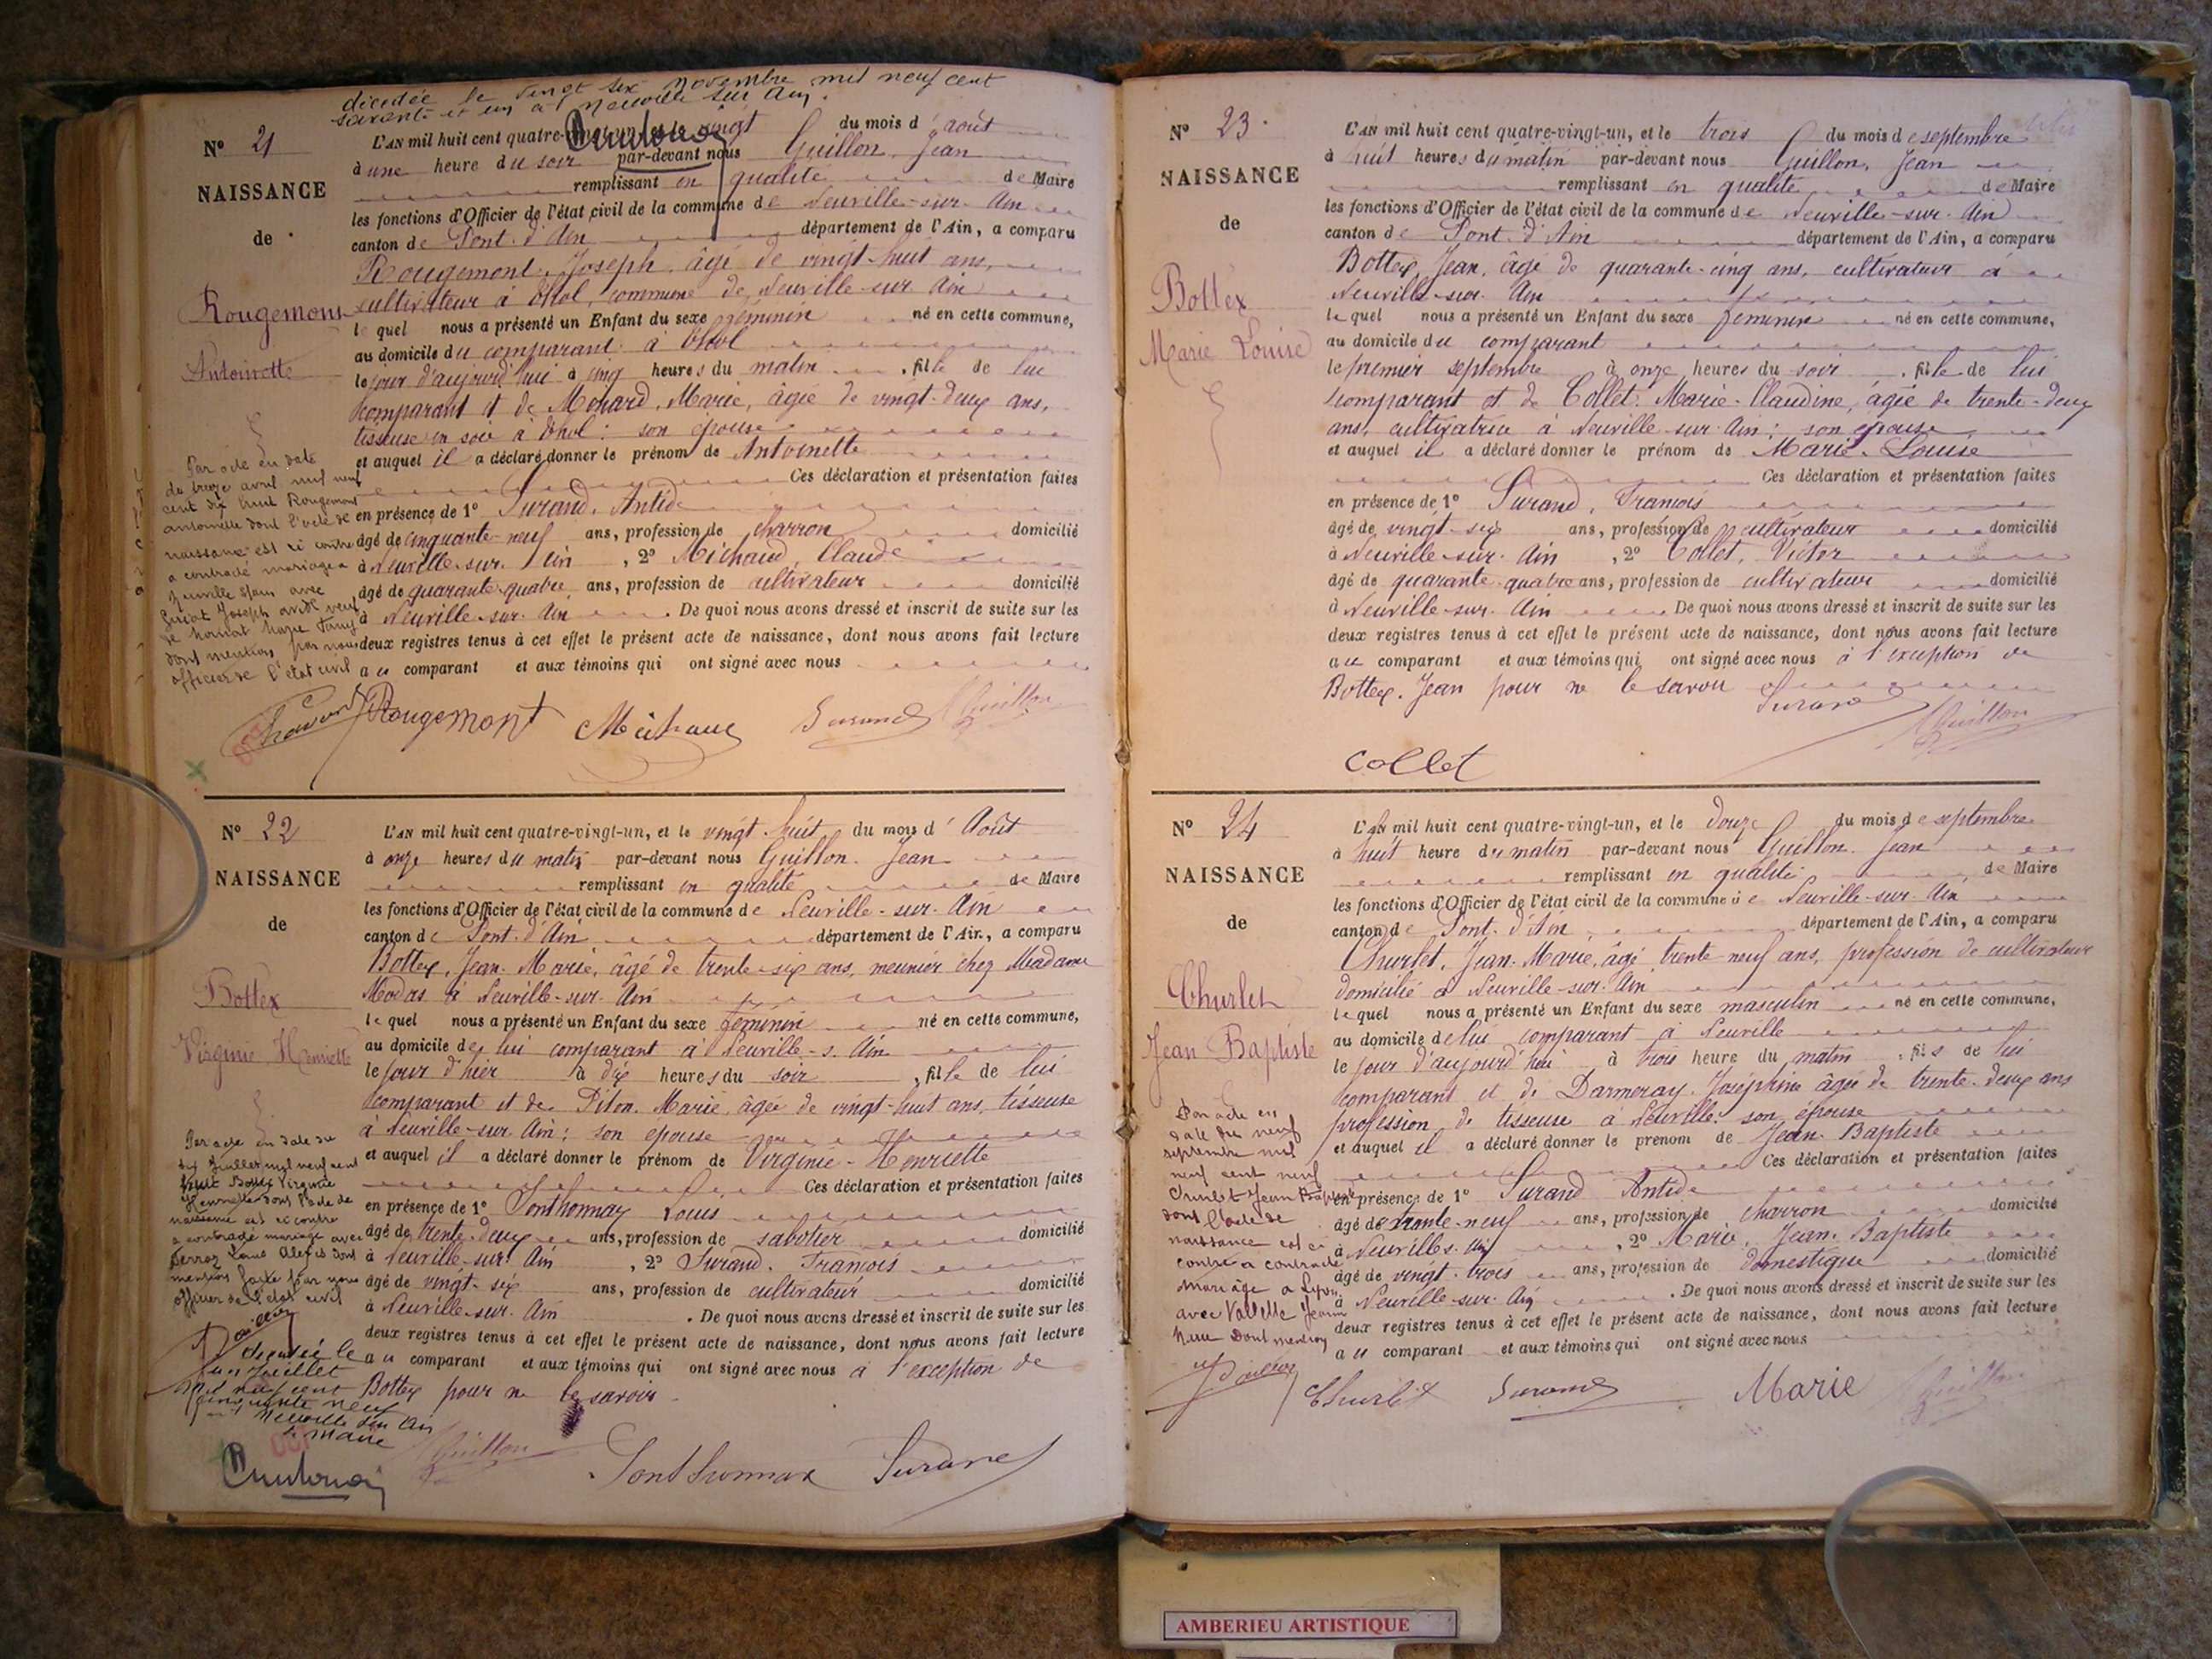 décédée le vingt six novembre mil neuf cent
soixante et un à Neuville sur Ain.
N° 21
NAISSANCE
de
Rougemont
Antoinette
L'AN mil huit cent quatre-vingt-un, et le vingt du mois d'août
à une heure du soir par-devant nous Guillon, Jean
remplissant en qualité de Maire
les fonctions d'Officier de l'état civil de la commune de Neuville-sur-Ain
canton de Pont-d'Ain département de l'Ain, a comparu
Rougemont, Joseph, âgé de vingt-huit ans,
cultivateur à Thol, commune de Neuville-sur-Ain
lequel nous a présenté un Enfant du sexe féminin né en cette commune,
au domicile du comparant à Thol
le jour d'aujourd'hui à cinq heures du matin, fille de lui
comparant et de Monard, Marie, âgée de vingt-deux ans,
tisseuse en soie à Thol : son épouse
et auquel il a déclaré donner le prénom de Antoinette
Ces déclaration et présentation faites
en présence de 1° Surand, Antide
âgé de cinquante-neuf ans, profession de charron domicilié
à Neuville-sur-Ain, 2° Michaud, Claude
âgé de quarante-quatre ans, profession de cultivateur domicilié
à Neuville-sur-Ain. De quoi nous avons dressé et inscrit de suite sur les
deux registres tenus à cet effet le présent acte de naissance, dont nous avons fait lecture
au comparant et aux témoins qui ont signé avec nous
Par acte en date
du treize avril mil neuf
cent dix huit Rougemont
antoinette dont l'acte de
naissance est ci contre
a contracté mariage à
Neuville s/ain avec
Joseph veuf
de Marie
dont mention par nous
officier de l'état civil
Rougemont Michaud Surand Guillon
N° 22
NAISSANCE
de
Bottex
Virginie Henriette
L'AN mil huit cent quatre-vingt-un, et le vingt-huit du mois d'Août
à onze heures du matin par-devant nous Guillon, Jean
remplissant en qualité de Maire
les fonctions d'Officier de l'état civil de la commune de Neuville-sur-Ain
canton de Pont-d'Ain département de l'Ain, a comparu
Bottex, Jean-Marie, âgé de trente-six ans, meunier chez Madame
Modas à Neuville-sur-Ain
lequel nous a présenté un Enfant du sexe féminin né en cette commune,
au domicile de lui comparant à Neuville-s-Ain
le jour d'hier à dix heures du soir, fille de lui
comparant et de Piton, Marie, âgée de vingt-huit ans, tisseuse
à Neuville-sur-Ain ; son épouse
et auquel il a déclaré donner le prénom de Virginie-Henriette
Ces déclaration et présentation faites
en présence de 1° Ponthonnax Louis
âgé de trente-deux ans, profession de sabotier domicilié
à Neuville-sur-Ain, 2° Surand, François
âgé de vingt-six ans, profession de cultivateur domicilié
à Neuville-sur-Ain. De quoi nous avons dressé et inscrit de suite sur les
deux registres tenus à cet effet le présent acte de naissance, dont nous avons fait lecture
au comparant et aux témoins qui ont signé avec nous à l'exception de
Bottex pour ne le savoir
Par acte en date du
dix Juillet mil neuf cent
Bottex Virginie
Henriette dont l'acte de
naissance est ci contre
a contracté mariage avec
Louis Alexis dont
mention faite par nous
officier de l'état civil
décédée le
un Juillet
mil neuf cent
cinquante neuf
à Neuville sur Ain
le maire
Guillon Ponthonnax Surand
N° 23
NAISSANCE
de
Bottex
Marie Louise
L'AN mil huit cent quatre-vingt-un, et le trois du mois de septembre
à huit heures du matin par-devant nous Guillon, Jean
remplissant en qualité de Maire
les fonctions d'Officier de l'état civil de la commune de Neuville-sur-Ain
canton de Pont-d'Ain département de l'Ain, a comparu
Bottex, Jean, âgé de quarante-cinq ans, cultivateur à
Neuville-sur-Ain
lequel nous a présenté un Enfant du sexe féminin né en cette commune,
au domicile du comparant
le premier septembre à onze heures du soir, fille de lui
comparant et de Collet, Marie-Claudine, âgée de trente-deux
ans, cultivatrice à Neuville-sur-Ain ; son épouse
et auquel il a déclaré donner le prénom de Marie-Louise
Ces déclaration et présentation faites
en présence de 1° Surand, François
âgé de vingt-six ans, profession de cultivateur domicilié
à Neuville-sur-Ain, 2° Collet, Victor
âgé de quarante-quatre ans, profession de cultivateur domicilié
à Neuville-sur-Ain De quoi nous avons dressé et inscrit de suite sur les
deux registres tenus à cet effet le présent acte de naissance, dont nous avons fait lecture
au comparant et aux témoins qui ont signé avec nous à l'exception de
Bottex, Jean pour ne le savoir
Surand Guillon
Collet
N° 24
NAISSANCE
de
Churlet
Jean Baptiste
L'AN mil huit cent quatre-vingt-un, et le douze du mois de septembre
à huit heure du matin par-devant nous Guillon, Jean
remplissant en qualité de Maire
les fonctions d'Officier de l'état civil de la commune de Neuville-sur-Ain
canton de Pont-d'Ain département de l'Ain, a comparu
Churlet, Jean-Marie, âgé trente neuf ans, profession de cultivateur
domicilié à Neuville-sur-Ain
lequel nous a présenté un Enfant du sexe masculin né en cette commune,
au domicile de lui comparant à Neuville
le jour d'aujourd'hui à trois heure du matin, fils de lui
comparant et de Darmeray, Joséphine âgée de trente-deux ans
profession de tisseuse à Neuville son épouse
et auquel il a déclaré donner le prénom de Jean-Baptiste
Ces déclaration et présentation faites
en présence de 1° Surand Antide
âgé de trente-neuf ans, profession de charron domicilié
à Neuville s. Ain, 2° Marie, Jean-Baptiste
âgé de vingt-trois ans, profession de domestique domicilié
à Neuville-sur-Ain. De quoi nous avons dressé et inscrit de suite sur les
deux registres tenus à cet effet le présent acte de naissance, dont nous avons fait lecture
au comparant et aux témoins qui ont signé avec nous
Par acte en
date du neuf
septembre mil
neuf cent neuf
Churlet Jean Baptiste
dont l'acte de
naissance est ci
contre a contracté
mariage à Lyon
avec Vallette Jeanne
dont mention
Churlet Surand Marie Guillon
AMBERIEU ARTISTIQUE